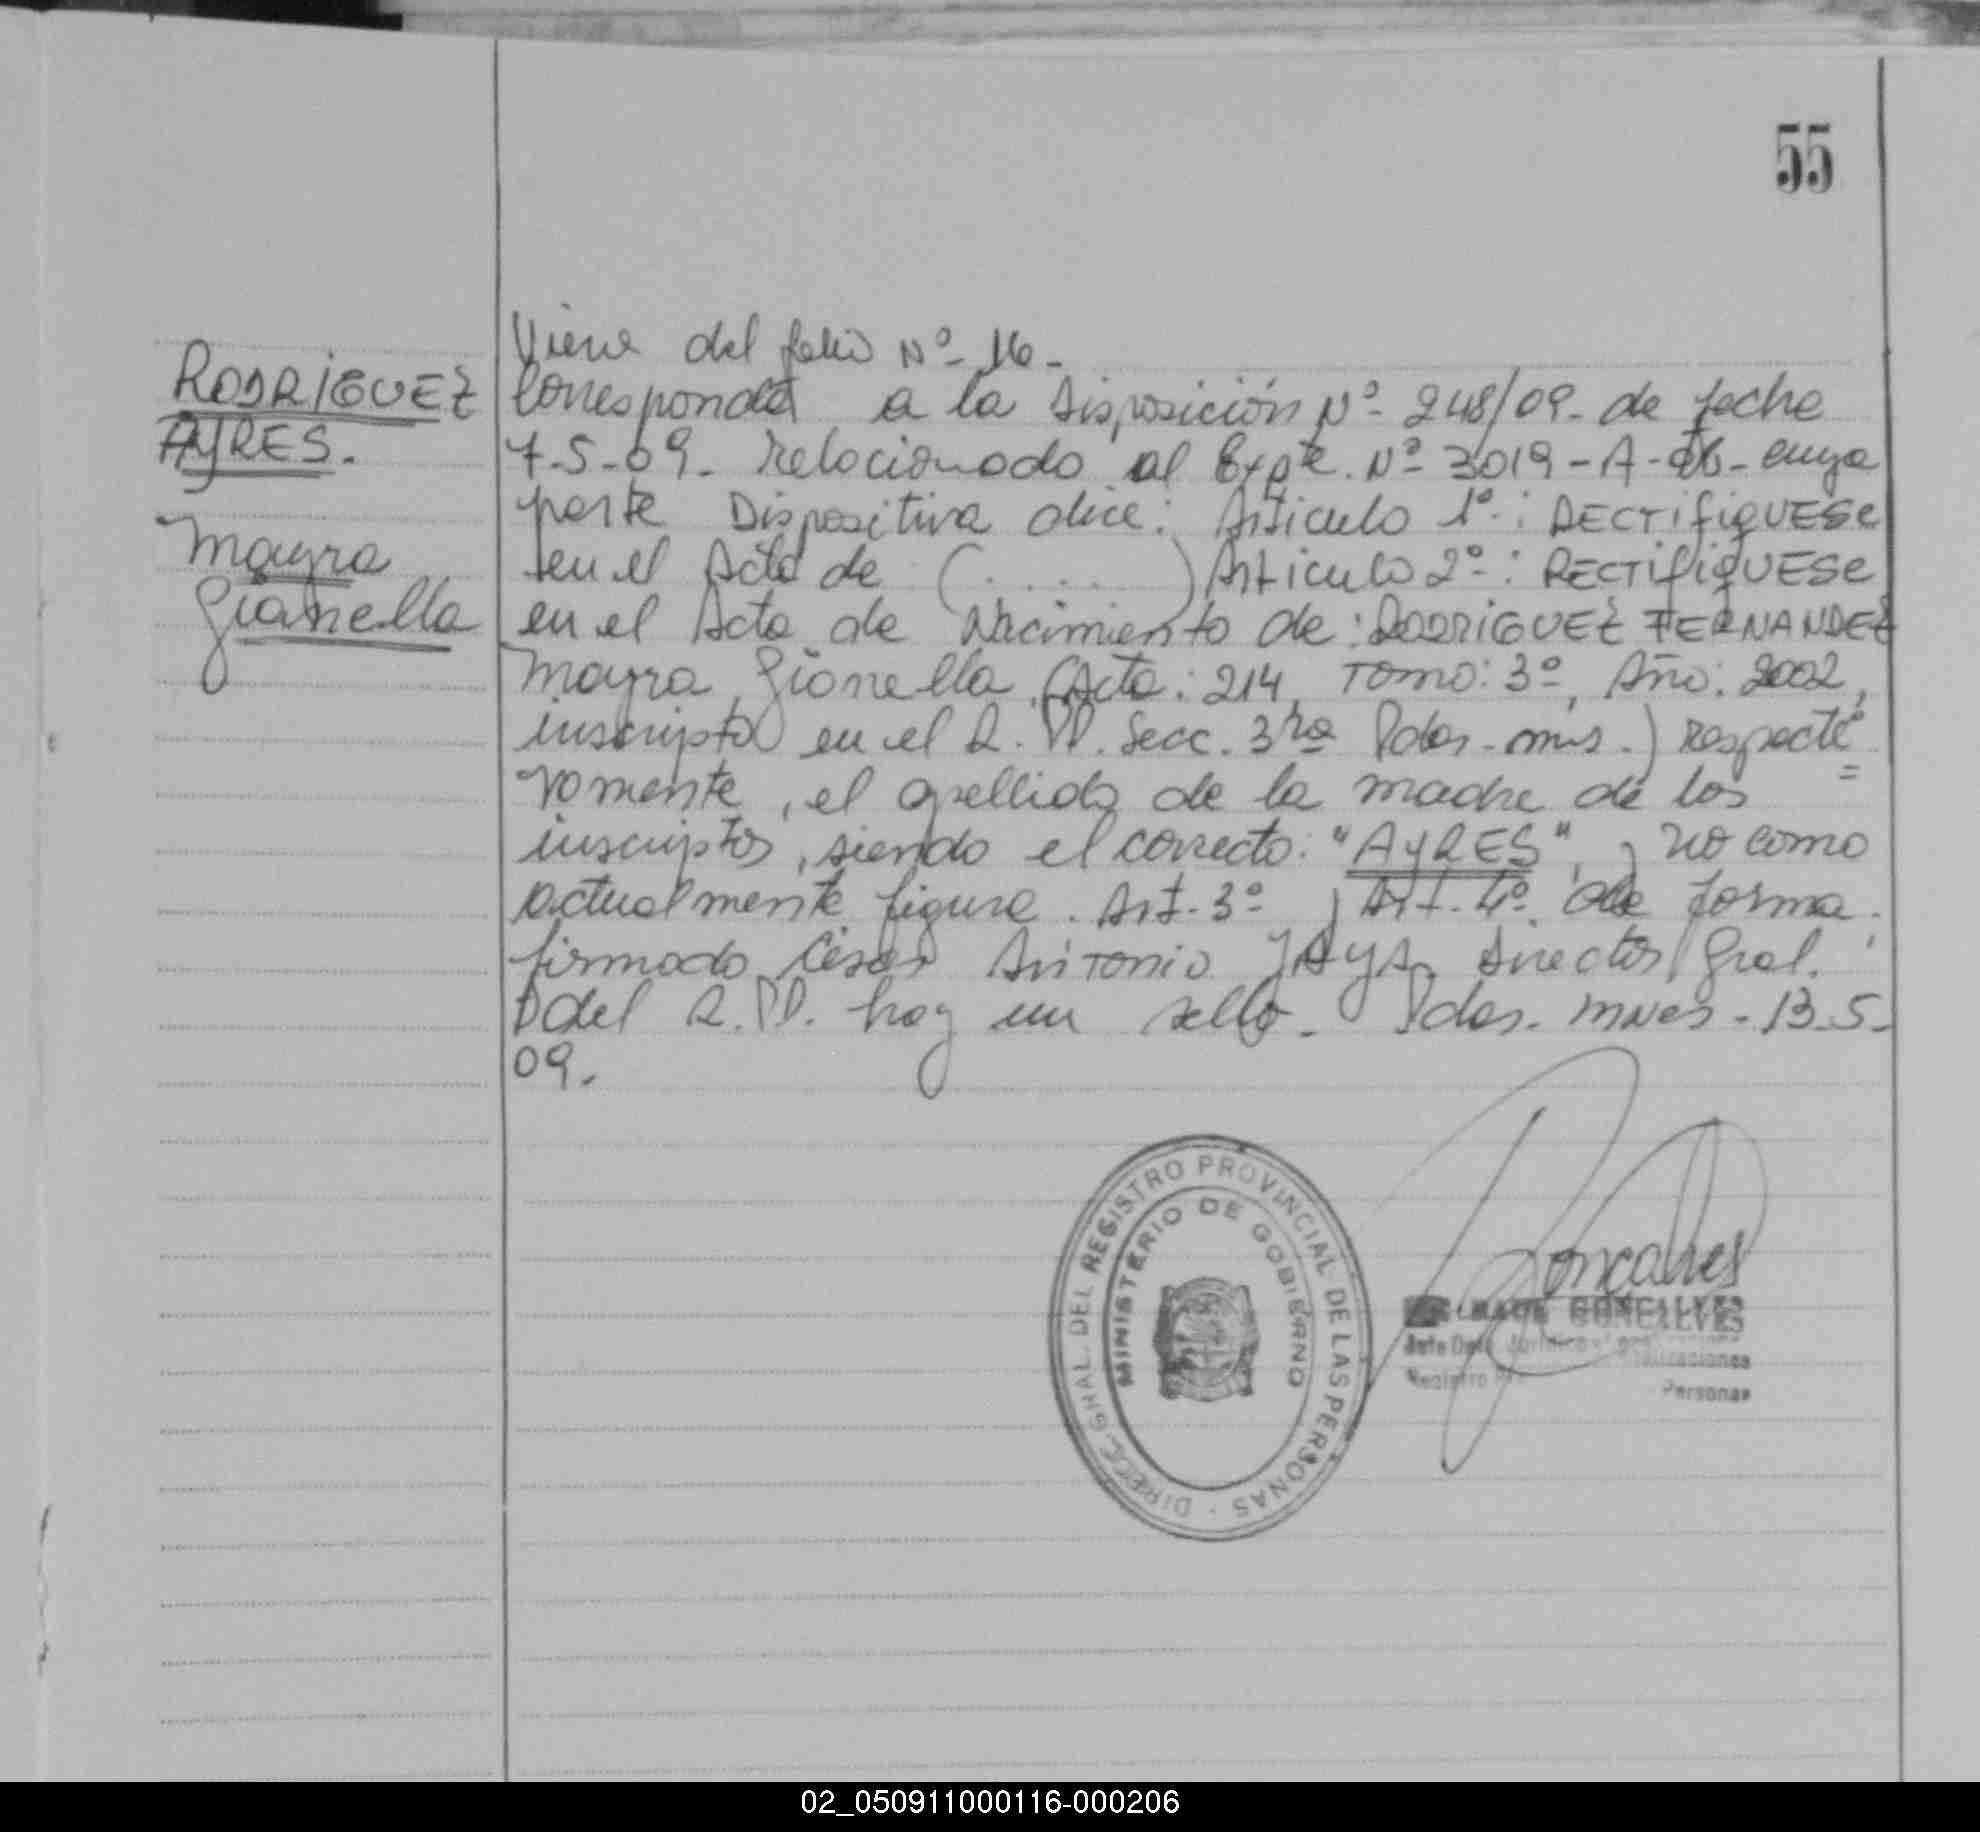 55
RODRIGUEZ
AYRES.
Mayra
Gianella
Viene del folio Nº 16.
Corresponde a la Disposición Nº 248/09 - de fecha
7-5-09. relacionado al Expte. Nº 3019-A-06- cuya
parte Dispositiva dice: Articulo 1º: RECTIFIQUESE
en el Acta de (.....) Articulo 2º: RECTIFIQUESE
en el Acta de Nacimiento de: RODRIGUEZ FERNANDEZ
Mayra Gianella, (Acta: 214, Tomo: 3º, Año: 2002,
inscripta en el R.PP. Secc. 3ra Pdas - mis.) respecti=
vamente, el apellido de la madre de los
inscriptos, siendo el correcto: "AYRES", y no como
actualmente figura. Art. 3º y Art. 4º de forma.
firmado César Antonio JAYA, Director Gral.
del R.PP. hay un sello. Pdas. mnes - 13-5-
09.
DIRECC. GRAL. DEL REGISTRO PROVINCIAL DE LAS PERSONAS
MINISTERIO DE GOBIERNO
Goncalves
GONCALVES
Registro
Personas
02_050911000116-000206